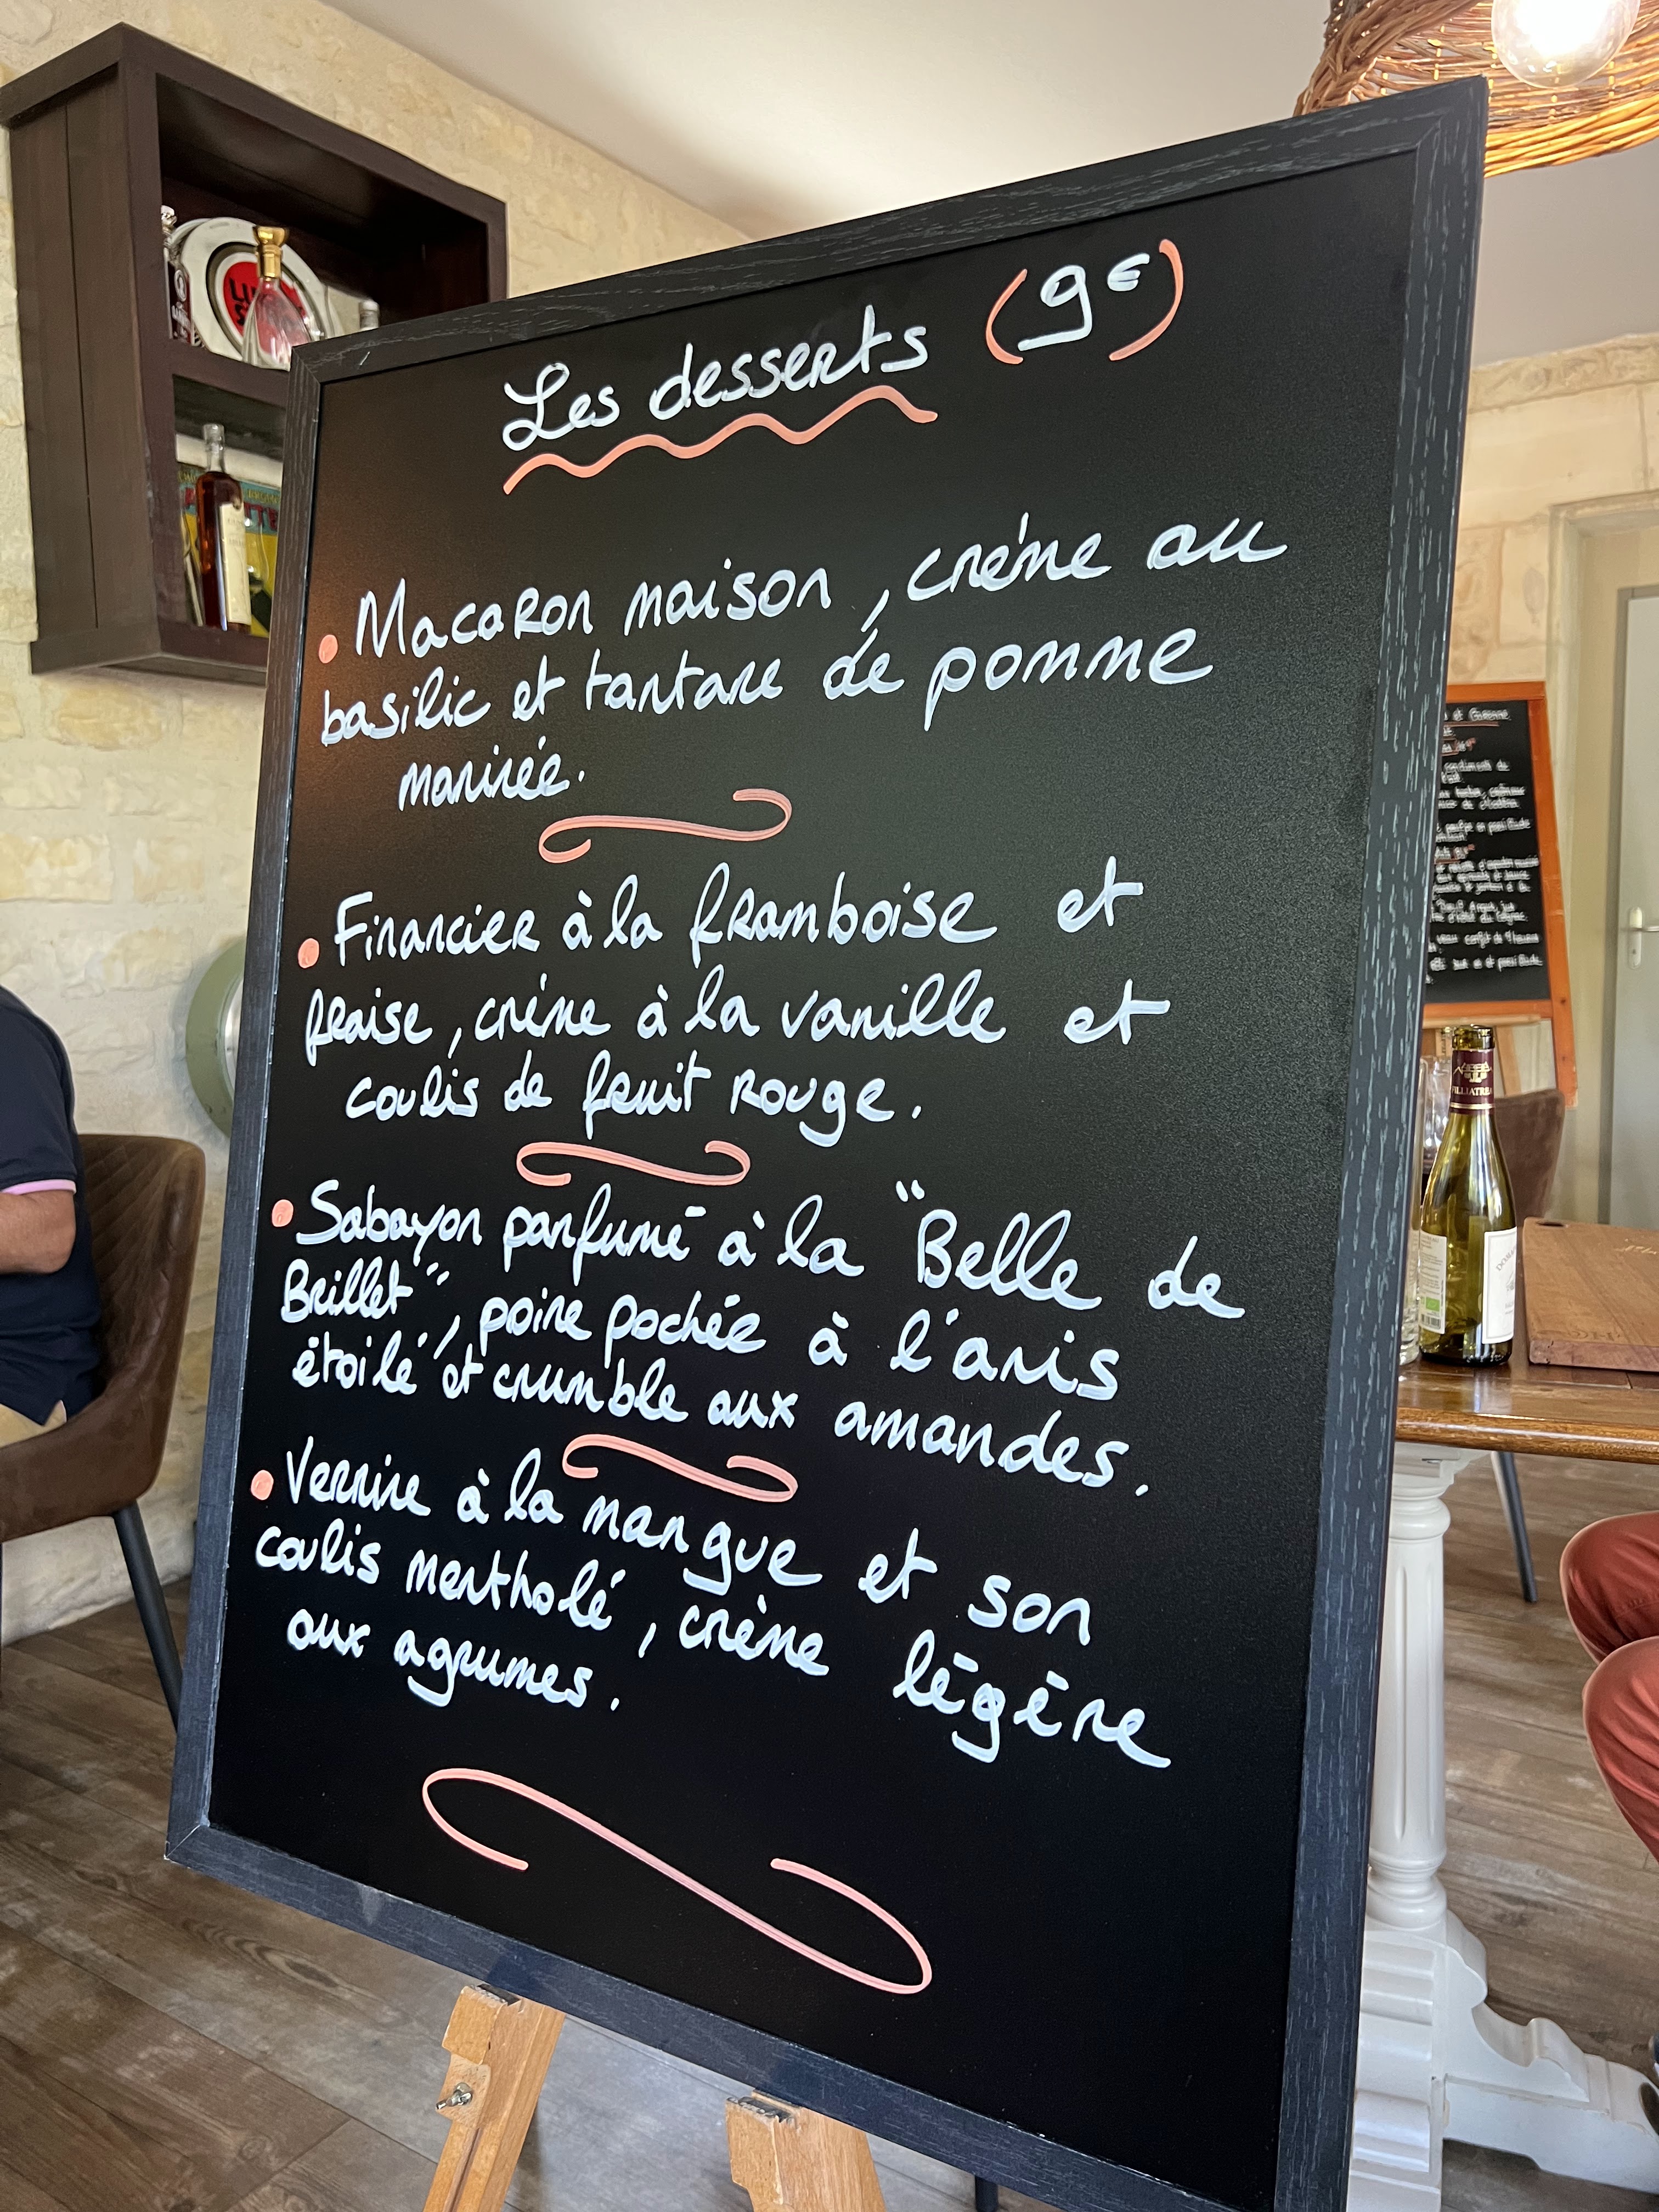 Les desserts (9€)
• Macaron maison, crème au
basilic et tartare de pomme
marinée.
• Financier à la framboise et
fraise, crème à la vanille et
coulis de fruit rouge.
• Sabayon parfumé à la "Belle de
Brillet", poire pochée à l'anis
étoilé et crumble aux amandes.
• Verrine à la mangue et son
coulis mentholé, crème légère
aux agrumes.